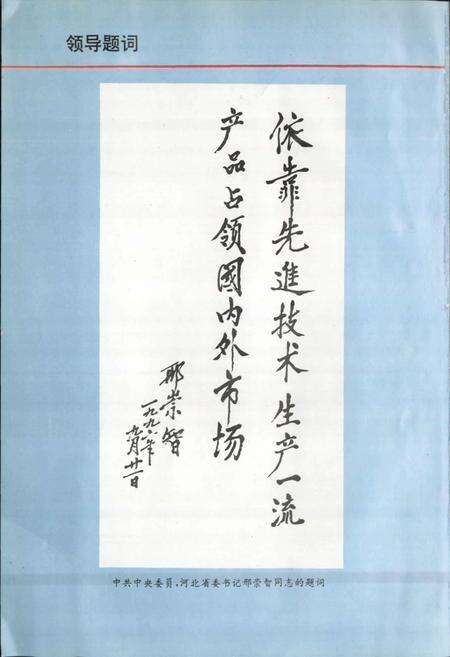 领导题词
依靠先進技术生产一流
产品占领國内外市场
邢崇智
一九九六年
九月廿一日
中共中央委员,河北省委书记邢崇智同志的题词